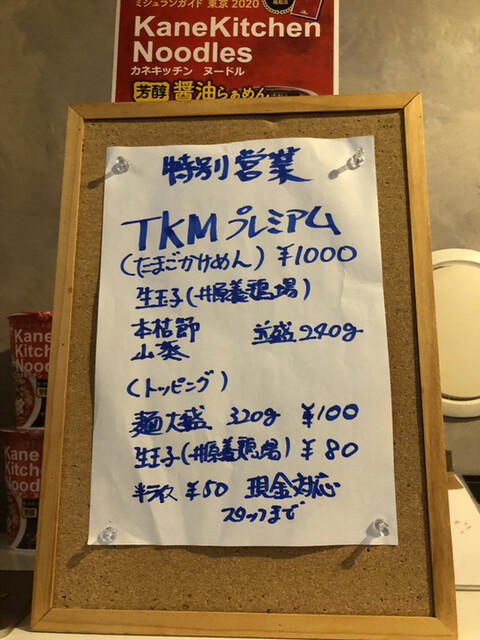 ミシュランガイド 東京 2020
KaneKitchen
Noodles
カネキッチン ヌードル
芳醇 醤油らぁめん
特別営業
TKMプレミアム
(たまごかけめん) ¥1000
生玉子(井原養鶏場)
本枯節 並盛240g
山葵
(トッピング)
麺大盛 320g ¥100
生玉子(井原養鶏場) ¥80
半ライス ¥50 現金対応
スタッフまで
Kane
Kitch
Nood
Kane
Kitc
Nood